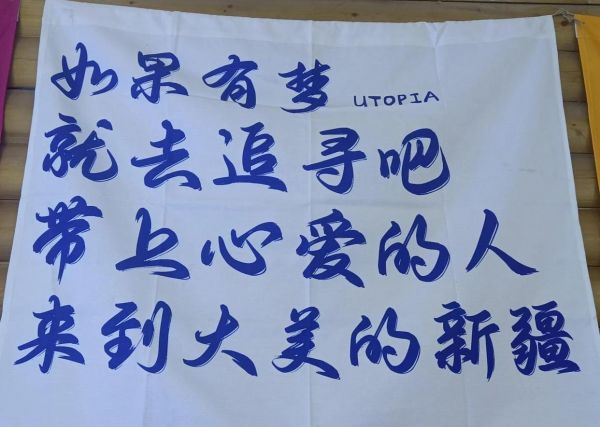 如果有梦 UTOPIA
就去追寻吧
带上心爱的人
来到大美的新疆